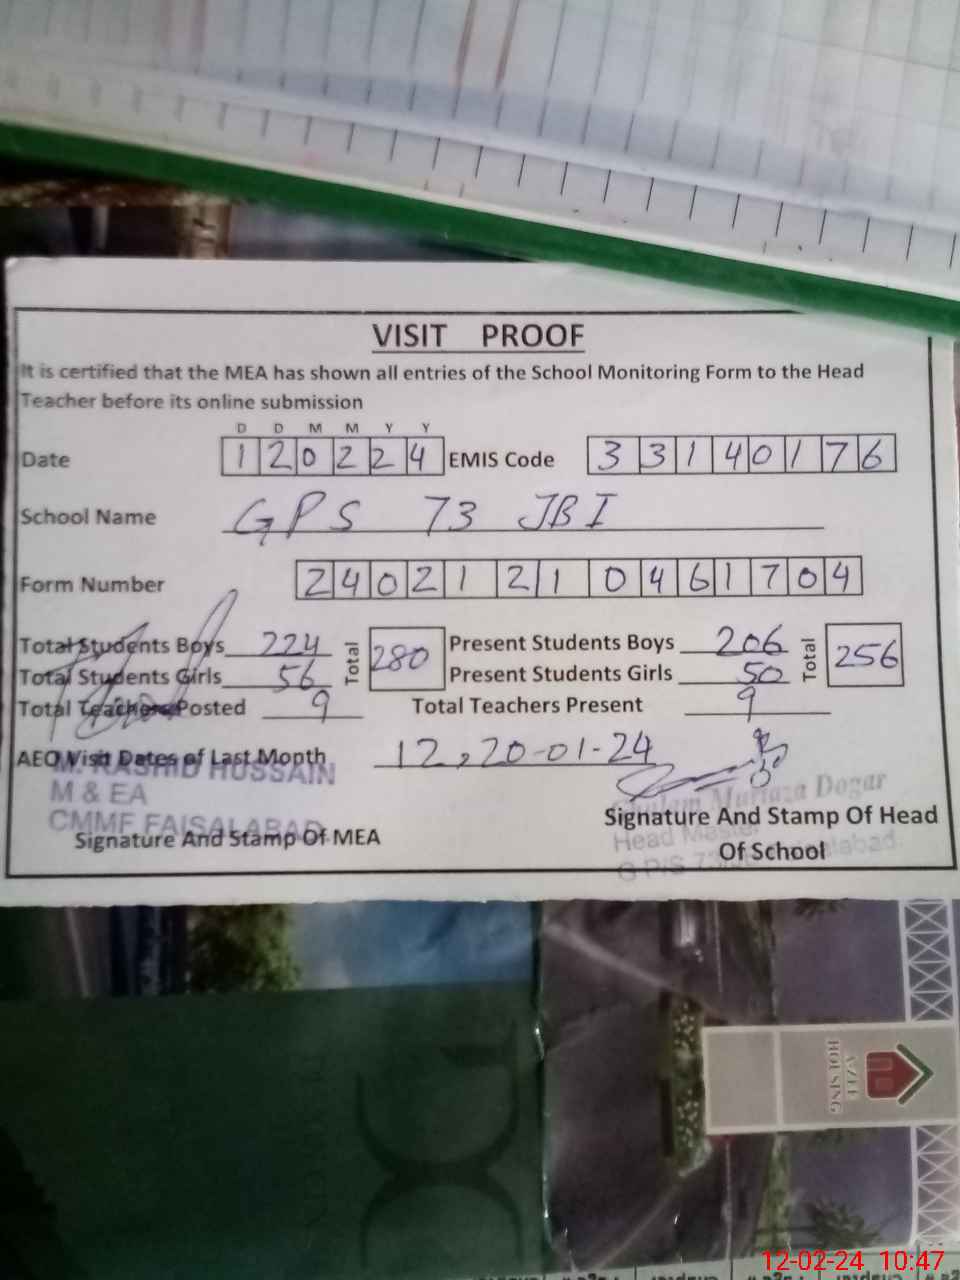 VISIT PROOF
It is certified that the MEA has shown all entries of the School Monitoring Form to the Head
Teacher before its online submission
D D M M Y Y
Date 1 2 0 2 2 4 EMIS Code 3 3 1 4 0 1 7 6
School Name GPS 73 JBI
Form Number 2 4 0 2 1 2 1 0 4 6 1 7 0 4
Total Students Boys 224 Total 280 Present Students Boys 206 Total 256
Total Students Girls 56 Present Students Girls 50
Total Teachers Posted 9 Total Teachers Present 9
AEO Visit Dates of Last Month 12, 20-01-24
M. RASHID HUSSAIN
M & EA
CMMF FAISALABAD
Signature And Stamp Of MEA
Ghulam Murtaza Dogar
Signature And Stamp Of Head
Head Master
Of School
AZEE
HOUSING
12-02-24 10:47